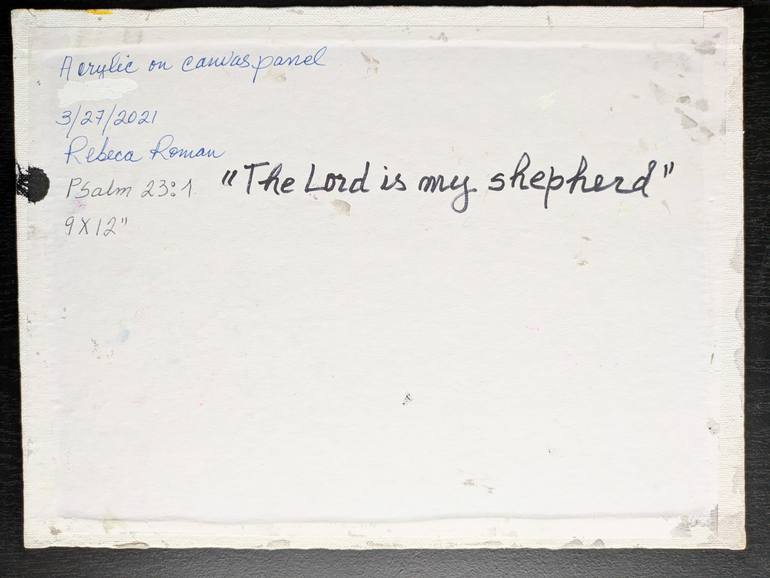 Acrylic on canvas panel
3/27/2021
Rebeca Roman
Psalm 23:1 "The Lord is my shepherd"
9X12"